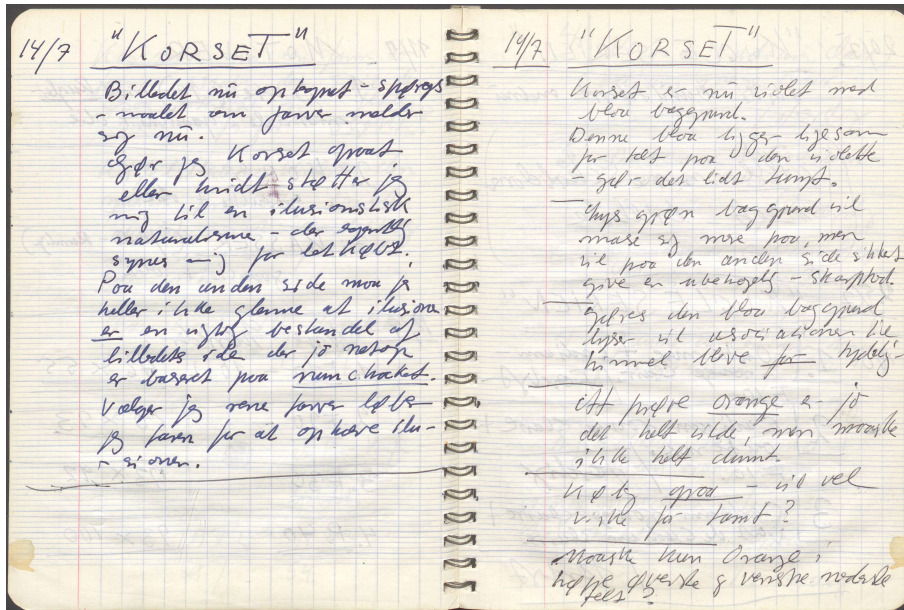 14/7 "KORSET"
Billedet nu optegnet - spørgs
- maalet om farver melder
sig nu.
Gør jeg Korset graat
eller hvidt støtter jeg
mig til en ilusionistisk
naturalisme - der egentlig
synes mig for letkøbt.
Paa den anden side maa jeg
heller ikke glemme at ilusionen
er en vigtig bestandel af
billedets ide der jo netop
er baseret paa rumchocket.
Vælger jeg rene farver løber
jeg faren for at ophæve ilu-
- sionen.
14/7 "KORSET"
Korset er nu violet med
blaa baggrund.
Denne blaa ligger ligesom
for tæt paa den violette
- gør det lidt tamt.
Lys grøn baggrund vil
mase sig mere paa, men
vil paa den anden side sikkert
give en ubehagelig - skarphed.
Gøres den blaa baggrund
lyser vil associationen til
himmel blive for tydelig -
At prøve orange er jo
det helt vilde, men maaske
ikke helt dumt.
Kølig graa - vil vel
virke for tamt?
Maaske kun Orange i
højre øverste og venstre nederste
felt?